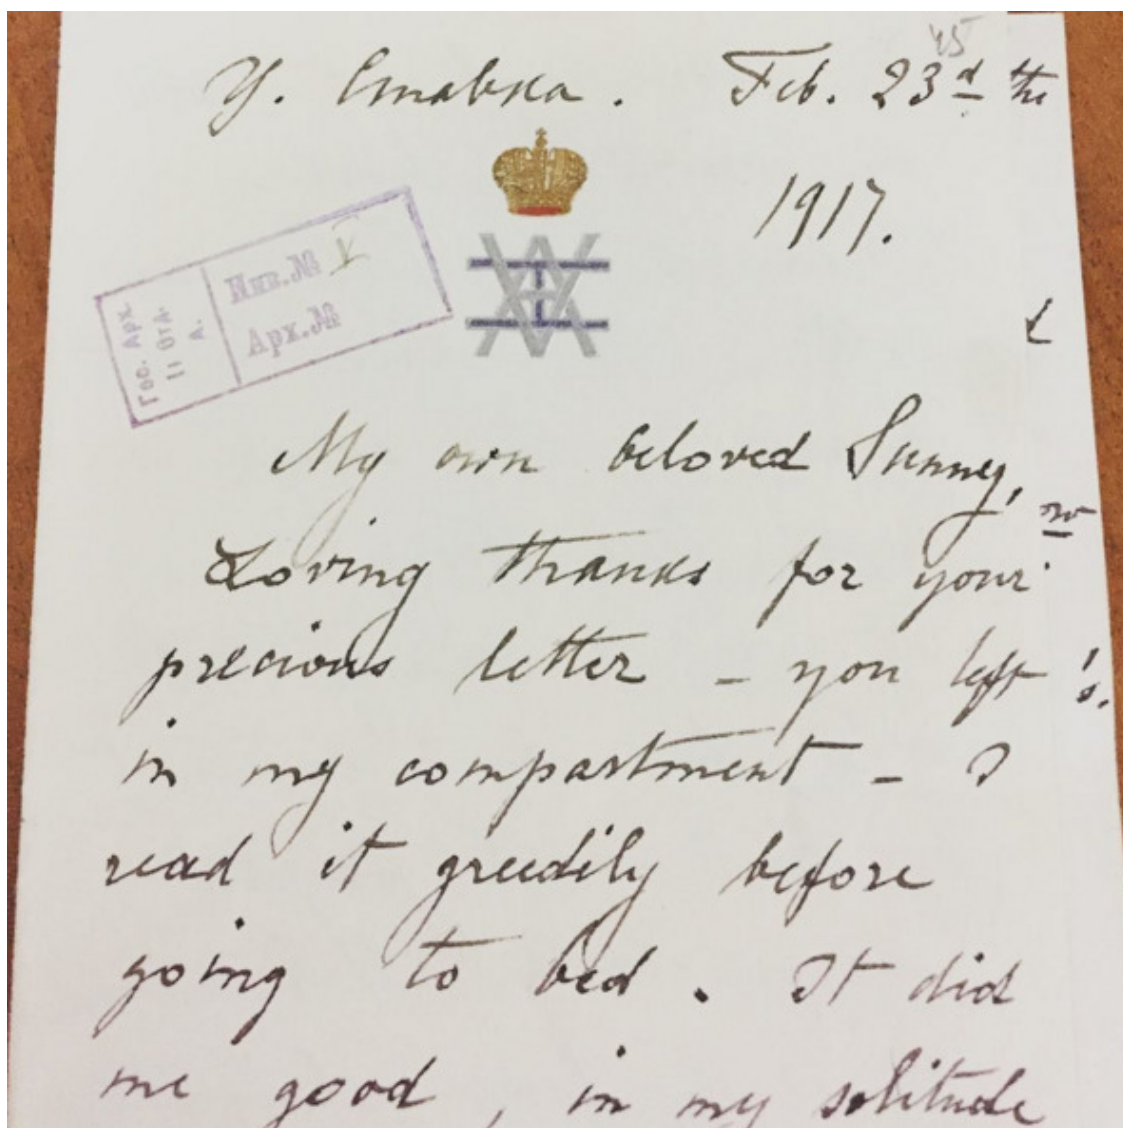 Ц. Ставка. Feb. 23d
1917.
45
Гос. Арх.
II Отд.
А.
Инв.№
Арх.№
My own beloved Sunny,
Loving thanks for your
precious letter – you left
in my compartment – I
read it greedily before
going to bed. It did
me good, in my solitude